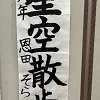 星空散歩
年 恩田そら